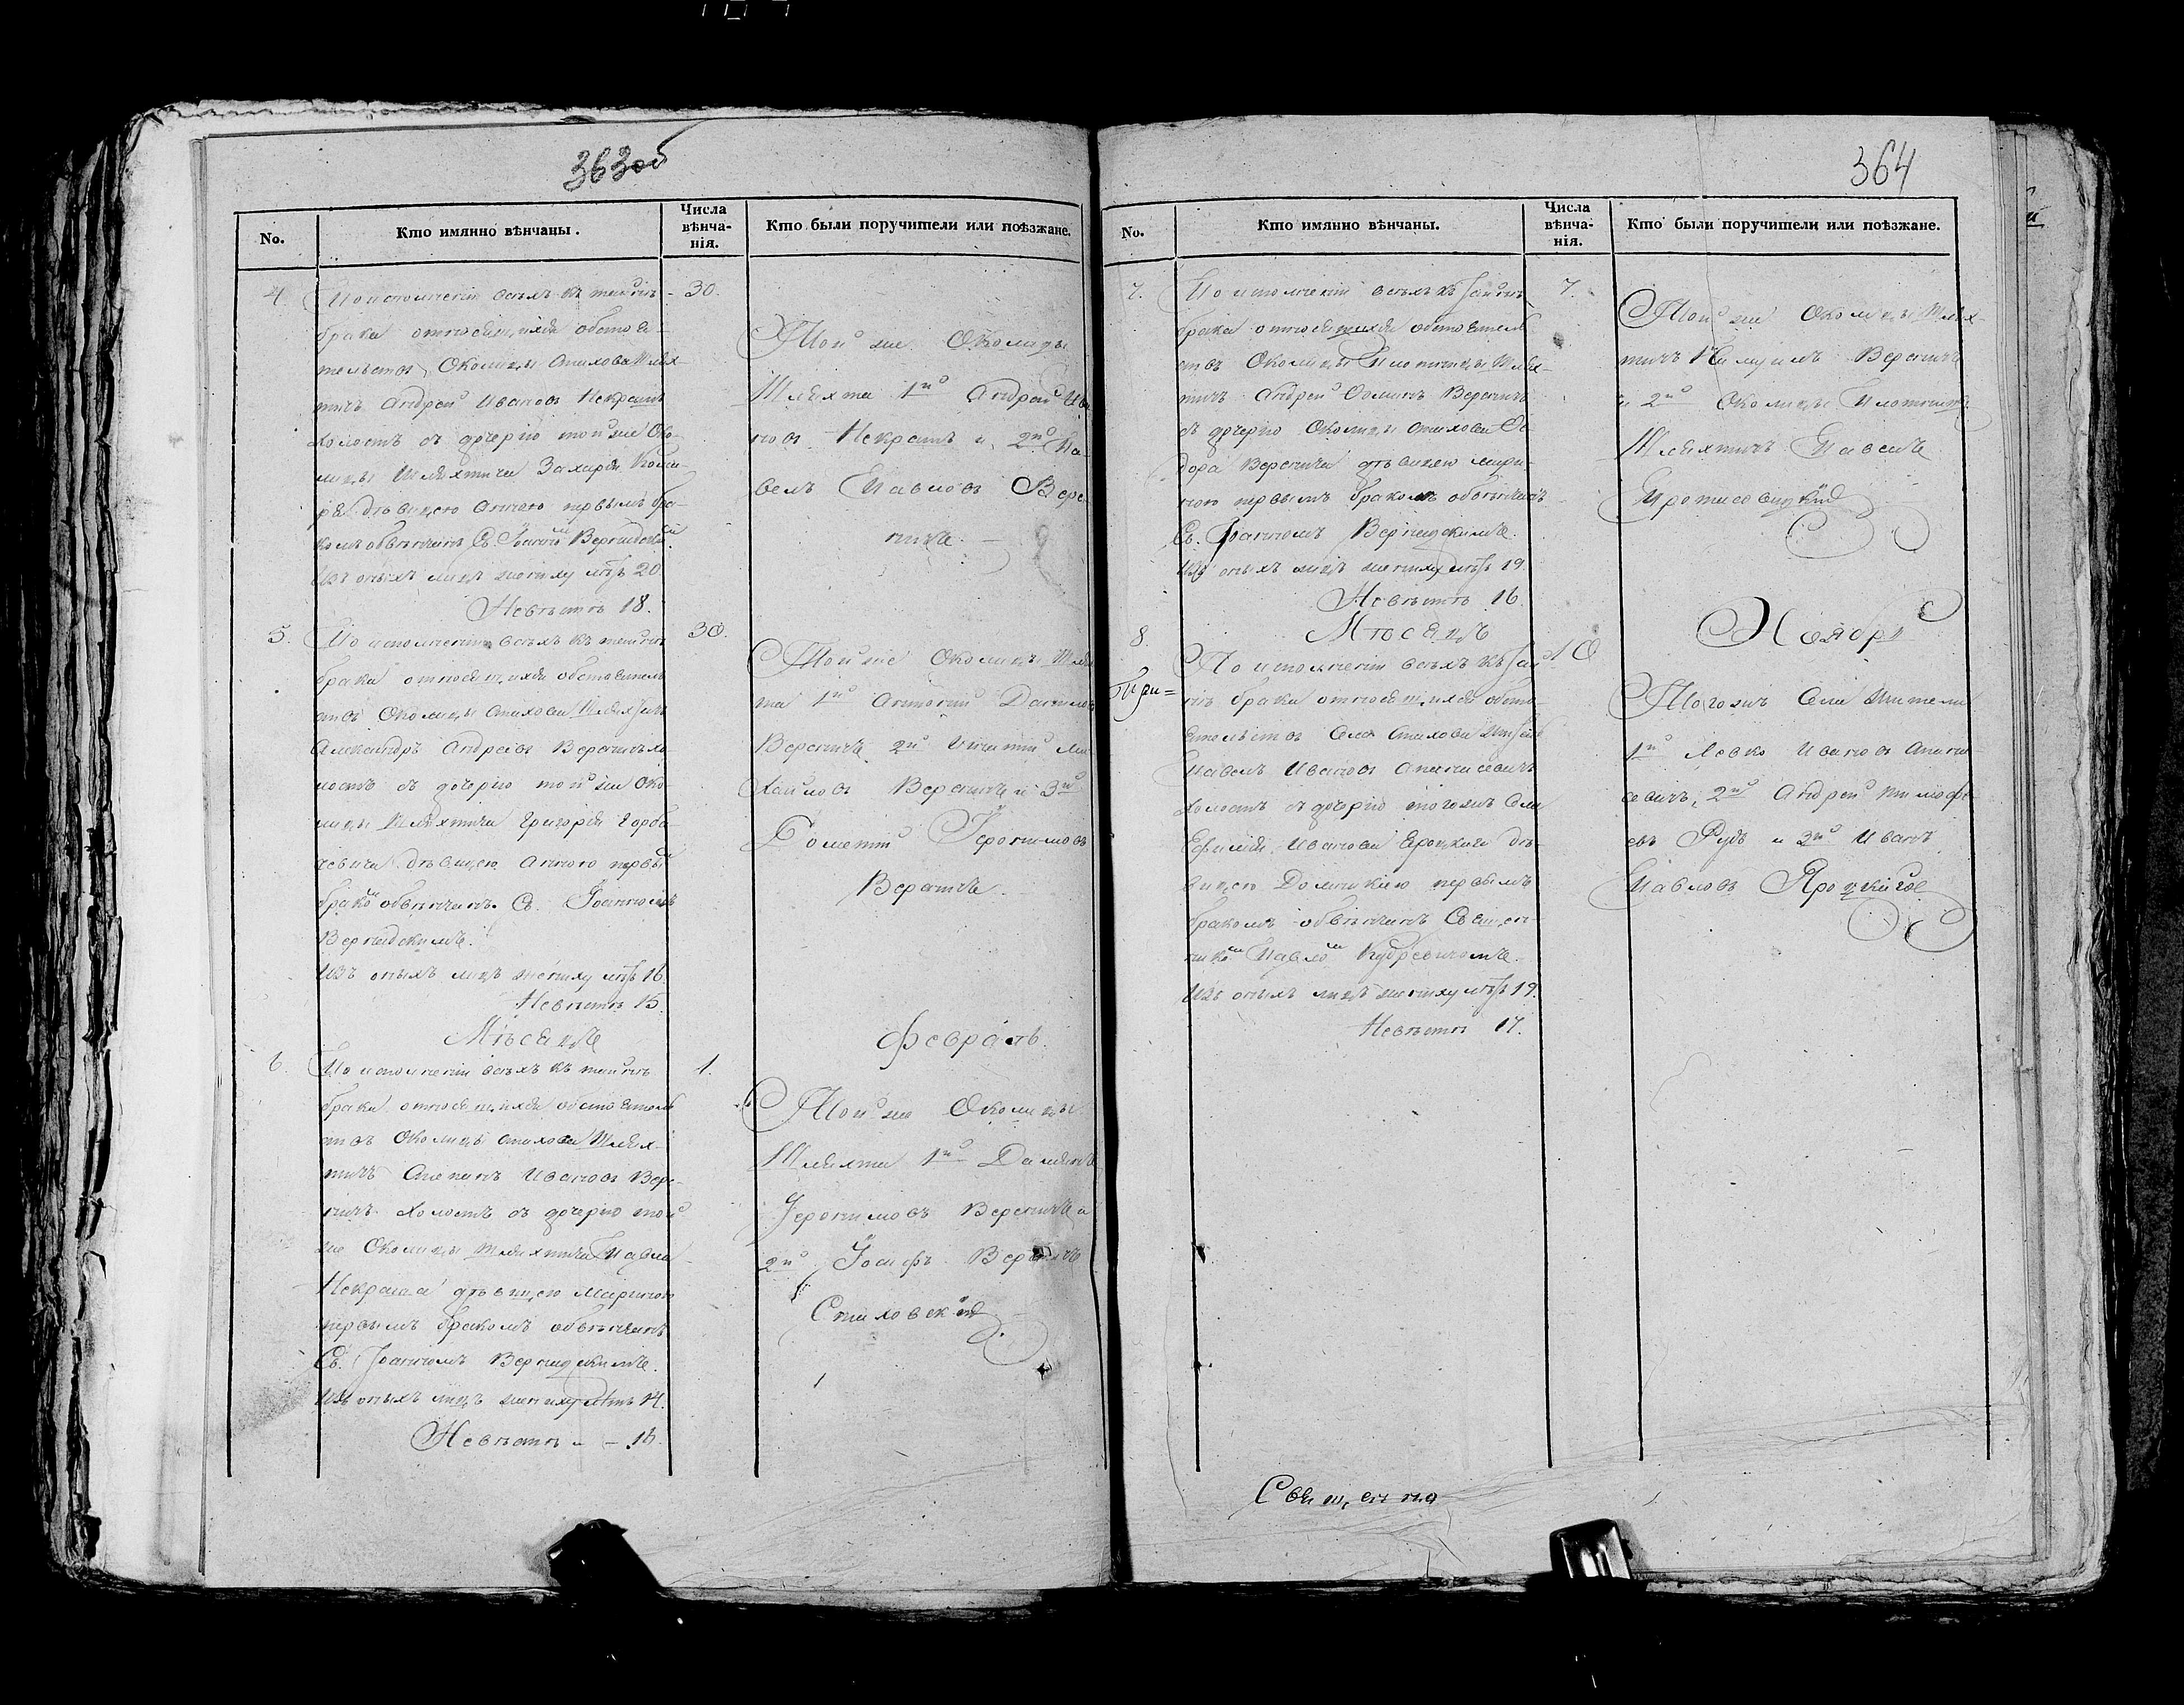 363об
No.
Кто имянно вѣнчаны.
Числа
вѣнча-
нія.
Кто были поручители или поѣзжане.
4.
По исполненіи всѣхъ къ таинст.
30.
брака относящихся обстоя-
тельствъ, Околицы Стахова Шлях-
тичъ Андрей Ивановъ Некрашъ
холостъ съ дочерію той же Око-
лицы Шляхтича Захарія
дѣвицею Анною первымъ бра-
комъ обвѣнчанъ Св. Іоанно Вернидски
Изъ оныхъ лицъ жениху лѣтъ 20
Невѣстѣ 18.
Той же Околицы
Шляхта 1й Андрей Ива
новъ Некрашъ и 2й Па-
велъ Павловъ Вере
ничъ.
5.
По исполненіи всѣхъ къ таинст
30.
брака относящихся обстоятель
ствъ Околицы Стахова Шляхтичъ
Александръ Андреевъ Вереничъ хо
лостъ съ дочерію той же Око
лицы Шляхтича Григорія Горба-
чевича дѣвицею Анною первы
брако обвѣнчанъ Св. Іоанномъ
Вернидскимъ.
Изъ оныхъ лицъ жениху лѣтъ 16.
Невѣстѣ 15.
Той же Околицы Шлях
та 1й Антоній Данилов
Вереничъ 2й Игнатій Ми
хайловъ Вереничъ и 3й
Дометій Іеронимовъ
Вереничъ.
Мѣсяцъ
Февраль.
6.
По исполненіи всѣхъ къ таинст
1.
брака относящихся обстоятель
ствъ Околицы Стахова Шлях-
тичъ Степанъ Ивановъ Вере-
ничъ холостъ съ дочерію той
же Околицы Шляхтича Павла
Некраша дѣвицею Мариною
первымъ бракомъ обвѣнчанъ
Св. Іоанномъ Вернидскимъ.
Изъ оныхъ лицъ жениху лѣтъ
Невѣстѣ
Той же Околицы
Шляхта 1й Дамянъ
Іеронимовъ Вереничъ и
2й Іосифъ Вереничъ
Стаховскій
364
No.
Кто имянно вѣнчаны.
Числа
вѣнча-
нія.
Кто были поручители или поѣзжане.
7.
По исполненіи всѣхъ къ таинст
7.
брака относящихся обстоятель
ствъ Околицы Плотницы Шлях-
тичъ Андрей Фоминъ Вереничъ
съ дочерію Околицы Стахова Фе
дора Веренича дѣвицею Мари-
ною первымъ бракомъ обвѣнчанъ
Св. Іоанномъ Вернидскимъ.
Изъ оныхъ лицъ жениху лѣтъ 19.
Невѣстѣ 16.
Той же Околицы Шлях-
тичъ Вереничъ
и 2й Околицы Плотницы
Шляхтичъ Павелъ
Протасовицкій
Мѣсяцъ
Ноябрь
8.
По исполненіи всѣхъ къ таин
10
ствѣ брака относящихся обсто-
ятельствъ Села Стахова Житель
Павелъ Ивановъ Апанасевичъ
холостъ съ дочерію тогожъ Села
Ефимія Иванова Яроцкаго дѣ-
вицею Домникію первымъ
бракомъ обвѣнчанъ Священ-
нико Павло Кудревичомъ.
Изъ оныхъ лицъ жениху лѣтъ 19.
Невѣстѣ 17.
Тогожъ Села жители
1й Левко Ивановъ Апана-
севичъ, 2й Андрей Тимофе-
евъ Рудъ и 3й Иванъ
Павловъ Яроцкій
Священно